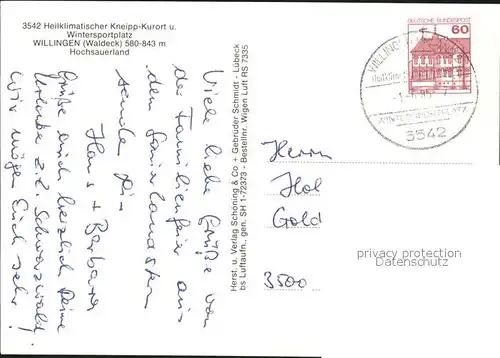 3542 Heilklimatischer Kneipp-Kurort u.
Wintersportplatz
WILLINGEN (Waldeck) 580-843 m
Hochsauerland
Viele liebe Grüße von
der Familienfeier aus
dem Sauerlandstern
sende Dir
Hans + Barbara
Grüße auch herzlich Deine
Urlaube z.Z. Schwarzwald
Wir mögen Euch sehr!
Herst. u. Verlag Schöning & Co + Gebrüder Schmidt - Lübeck
bs Luftaufn., gen. SH 1-72373 - Bestellnr. Wigen Luft RS 7335
DEUTSCHE BUNDESPOST
60
WILLINGEN
WINTERSPORTPLATZ
3542
Herrn
Hol
Gold
3500
privacy protection
VINTAGE-POSTCARDS.EU